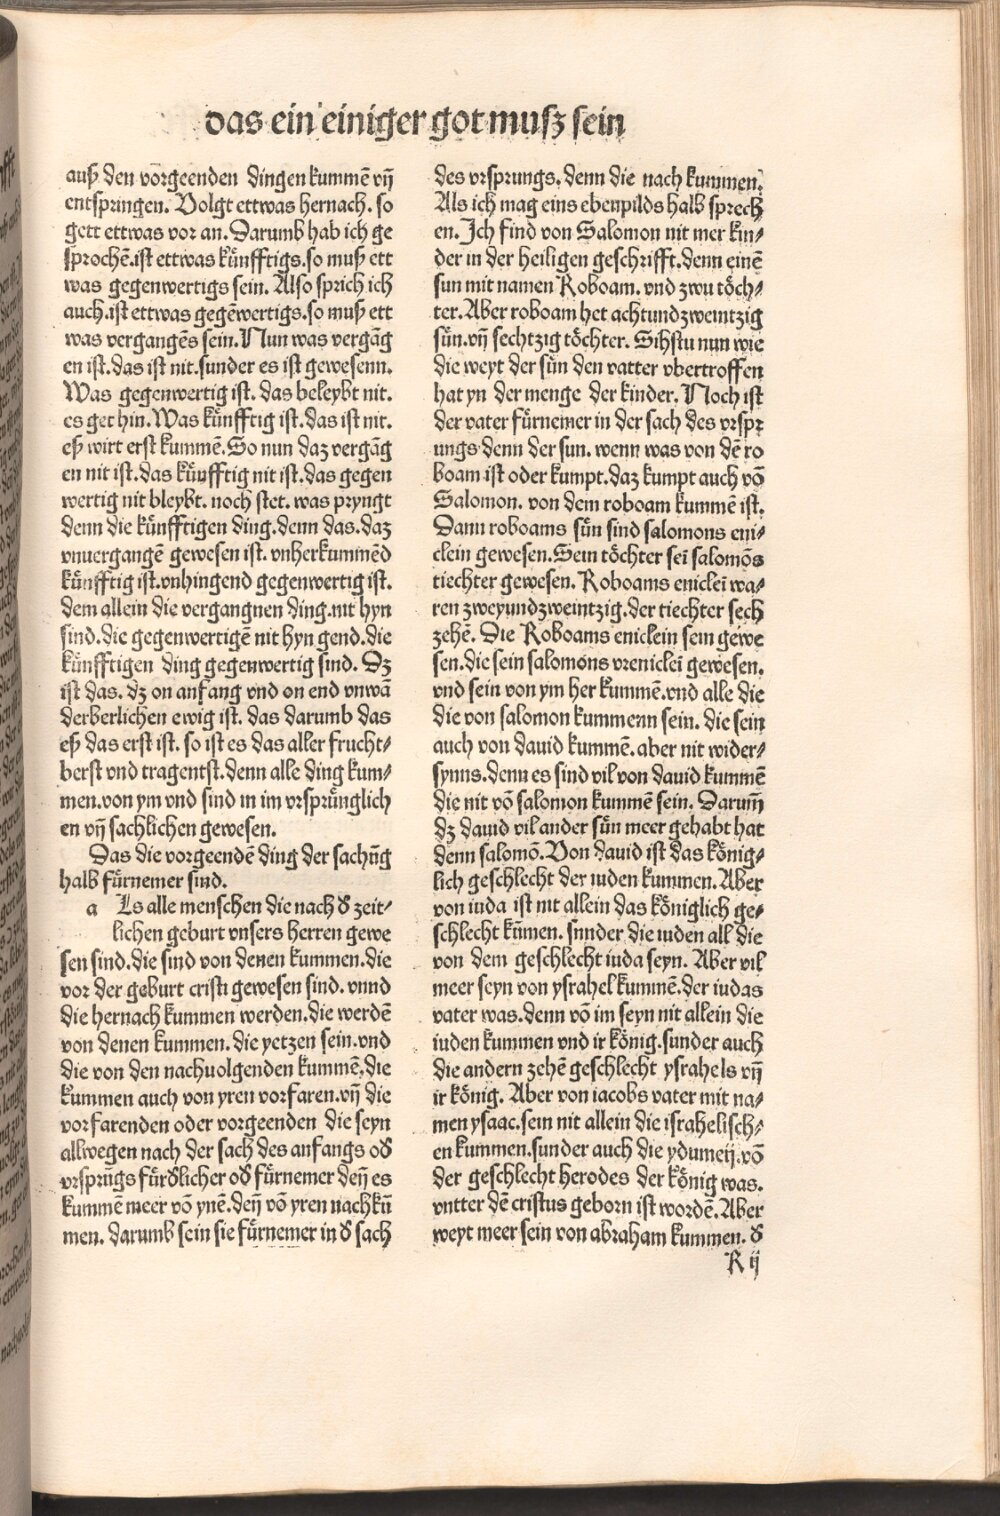 das ein einiger got musz sein
auß den vorgeenden dingen kummē vn̄
entspringen. Volgt ettwas hernach. so
gett ettwas vor an. Darumb hab ich ge
sprochē. ist ettwas künfftigs. so muß ett
was gegenwertigs sein. Also sprich ich
auch. ist ettwas gegēwertigs. so muß ett
was vergangēs sein. Nun was vergāg
en ist. das ist nit. sunder es ist gewesenn.
Was gegenwertig ist. das beleybt nit.
es get hin. Was künfftig ist. das ist nit.
eß wirt erst kummē. So nun daz vergāg
en nit ist. das künfftig nit ist. das gegen
wertig nit bleybt. noch stet. was pryngt
denn die künfftigen ding. denn das. daz
vnuergangē gewesen ist. vnherkummēd
künfftig ist. vnhingend gegenwertig ist.
dem allein die vergangnen ding. nit hyn
sind. die gegenwertigē nit hyn gend. die
künfftigen ding gegenwertig sind. Dz
ist das. dz on anfang vnd on end vnwā
derberlichen ewig ist. das darumb das
eß das erst ist. so ist es das aller frucht⸗
berst vnd tragentst. denn alle ding kum⸗
men. von ym vnd sind in im vrsprünglich
en vn̄ sachlichen gewesen.
Das die vorgeendē ding der sachūg
halb fürnemer sind.
a Ls alle menschen die nach d̕ zeit⸗
lichen geburt vnsers herren gewe
sen sind. die sind von denen kummen. die
vor der geburt cristi gewesen sind. vnnd
die hernach kummen werden. die werdē
von denen kummen. die yetzen sein. vnd
die von den nachuolgenden kummē. die
kummen auch von yren vorfaren. vn̄ die
vorfarenden oder vorgeenden die seyn
allwegen nach der sach des anfangs od̕
vrsprūgs fürd̕licher od̕ fürnemer den̄ es
kummē meer vō ynē. den̄ vō yren nachkū
men. darumb sein sie fürnemer in d̕ sach
des vrsprungs. denn die nach kummen.
Als ich mag eins ebenpilds halb sprech
en. Ich find von Salomon nit mer kin⸗
der in der heiligen geschrifft. denn einē
sun mit namen Roboam. vnd zwu töch⸗
ter. Aber roboam het achtundzweintzig
sün. vn̄ sechtzig töchter. Sihstu nun wie
die weyt der sün den vatter vbertroffen
hat yn der menge der kinder. Noch ist
der vater fürnemer in der sach des vrspr
ungs denn der sun. wenn was von dē ro
boam ist oder kumpt. daz kumpt auch vō
Salomon. von dem roboam kummē ist.
Dann roboams sün sind salomons eni⸗
clein gewesen. Sein töchter sei salomōs
tiechter gewesen. Roboams eniclei wa⸗
ren zweyundzweintzig. der tiechter sech
zehē. Die Roboams enicklein sein gewe
sen. die sein salomons vreniclei gewesen.
vnd sein von ym her kummē. vnd alle die
die von salomon kummenn sein. die sein
auch von dauid kummē. aber nit wider⸗
synns. denn es sind vil von dauid kummē
die nit vō salomon kummē sein. Darum̄
dz dauid vil ander sün meer gehabt hat
denn salomō. Von dauid ist das könig⸗
lich geschlecht der iuden kummen. Aber
von iuda ist nit allein das königlich ge⸗
schlecht kūmen. sunder die iuden all die
von dem geschlecht iuda seyn. Aber vil
meer seyn von ysrahel kummē. der iudas
vater was. denn vō im seyn nit allein die
iuden kummen vnd ir könig. sunder auch
die andern zehē geschlecht ysrahels vn̄
ir könig. Aber von iacobs vater mit na⸗
men ysaac. sein nit allein die israhelisch⸗
en kummen. sunder auch die ydumeij. vō
der geschlecht herodes der könig was.
vntter dē cristus geborn ist wordē. Aber
weyt meer sein von abraham kummen. d̕
R ij